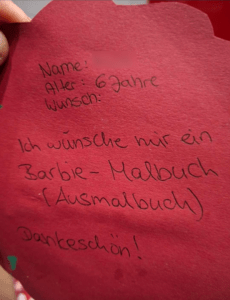 Name:
Alter: 6 Jahre
Wunsch:
Ich wünsche mir ein
Barbie-Malbuch
(Ausmalbuch)
Dankeschön!